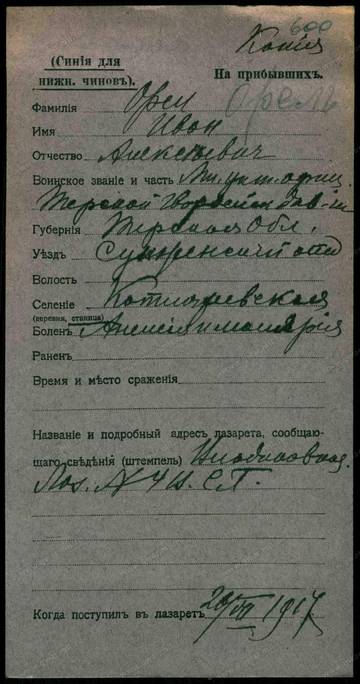 600
Копія
(Синія для
нижн. чиновъ).
На прибывшихъ.
Фамилія Орел Орелъ
Имя Иван
Отчество Алексѣевич
Воинское званіе и часть Мл. унт. офиц.
Терской
Губернія Терская Обл.
Уѣздъ Сунженскій отд
Волость
Селеніе
(деревня, станица) Котляревская
Боленъ Анемія и малярія
Раненъ
Время и мѣсто сраженія
Названіе и подробный адресъ лазарета, сообщаю-
щаго свѣдѣнія (штемпель)
Лаз. № 4 В. С. Г.
Когда поступилъ въ лазаретъ 20/VII 1917